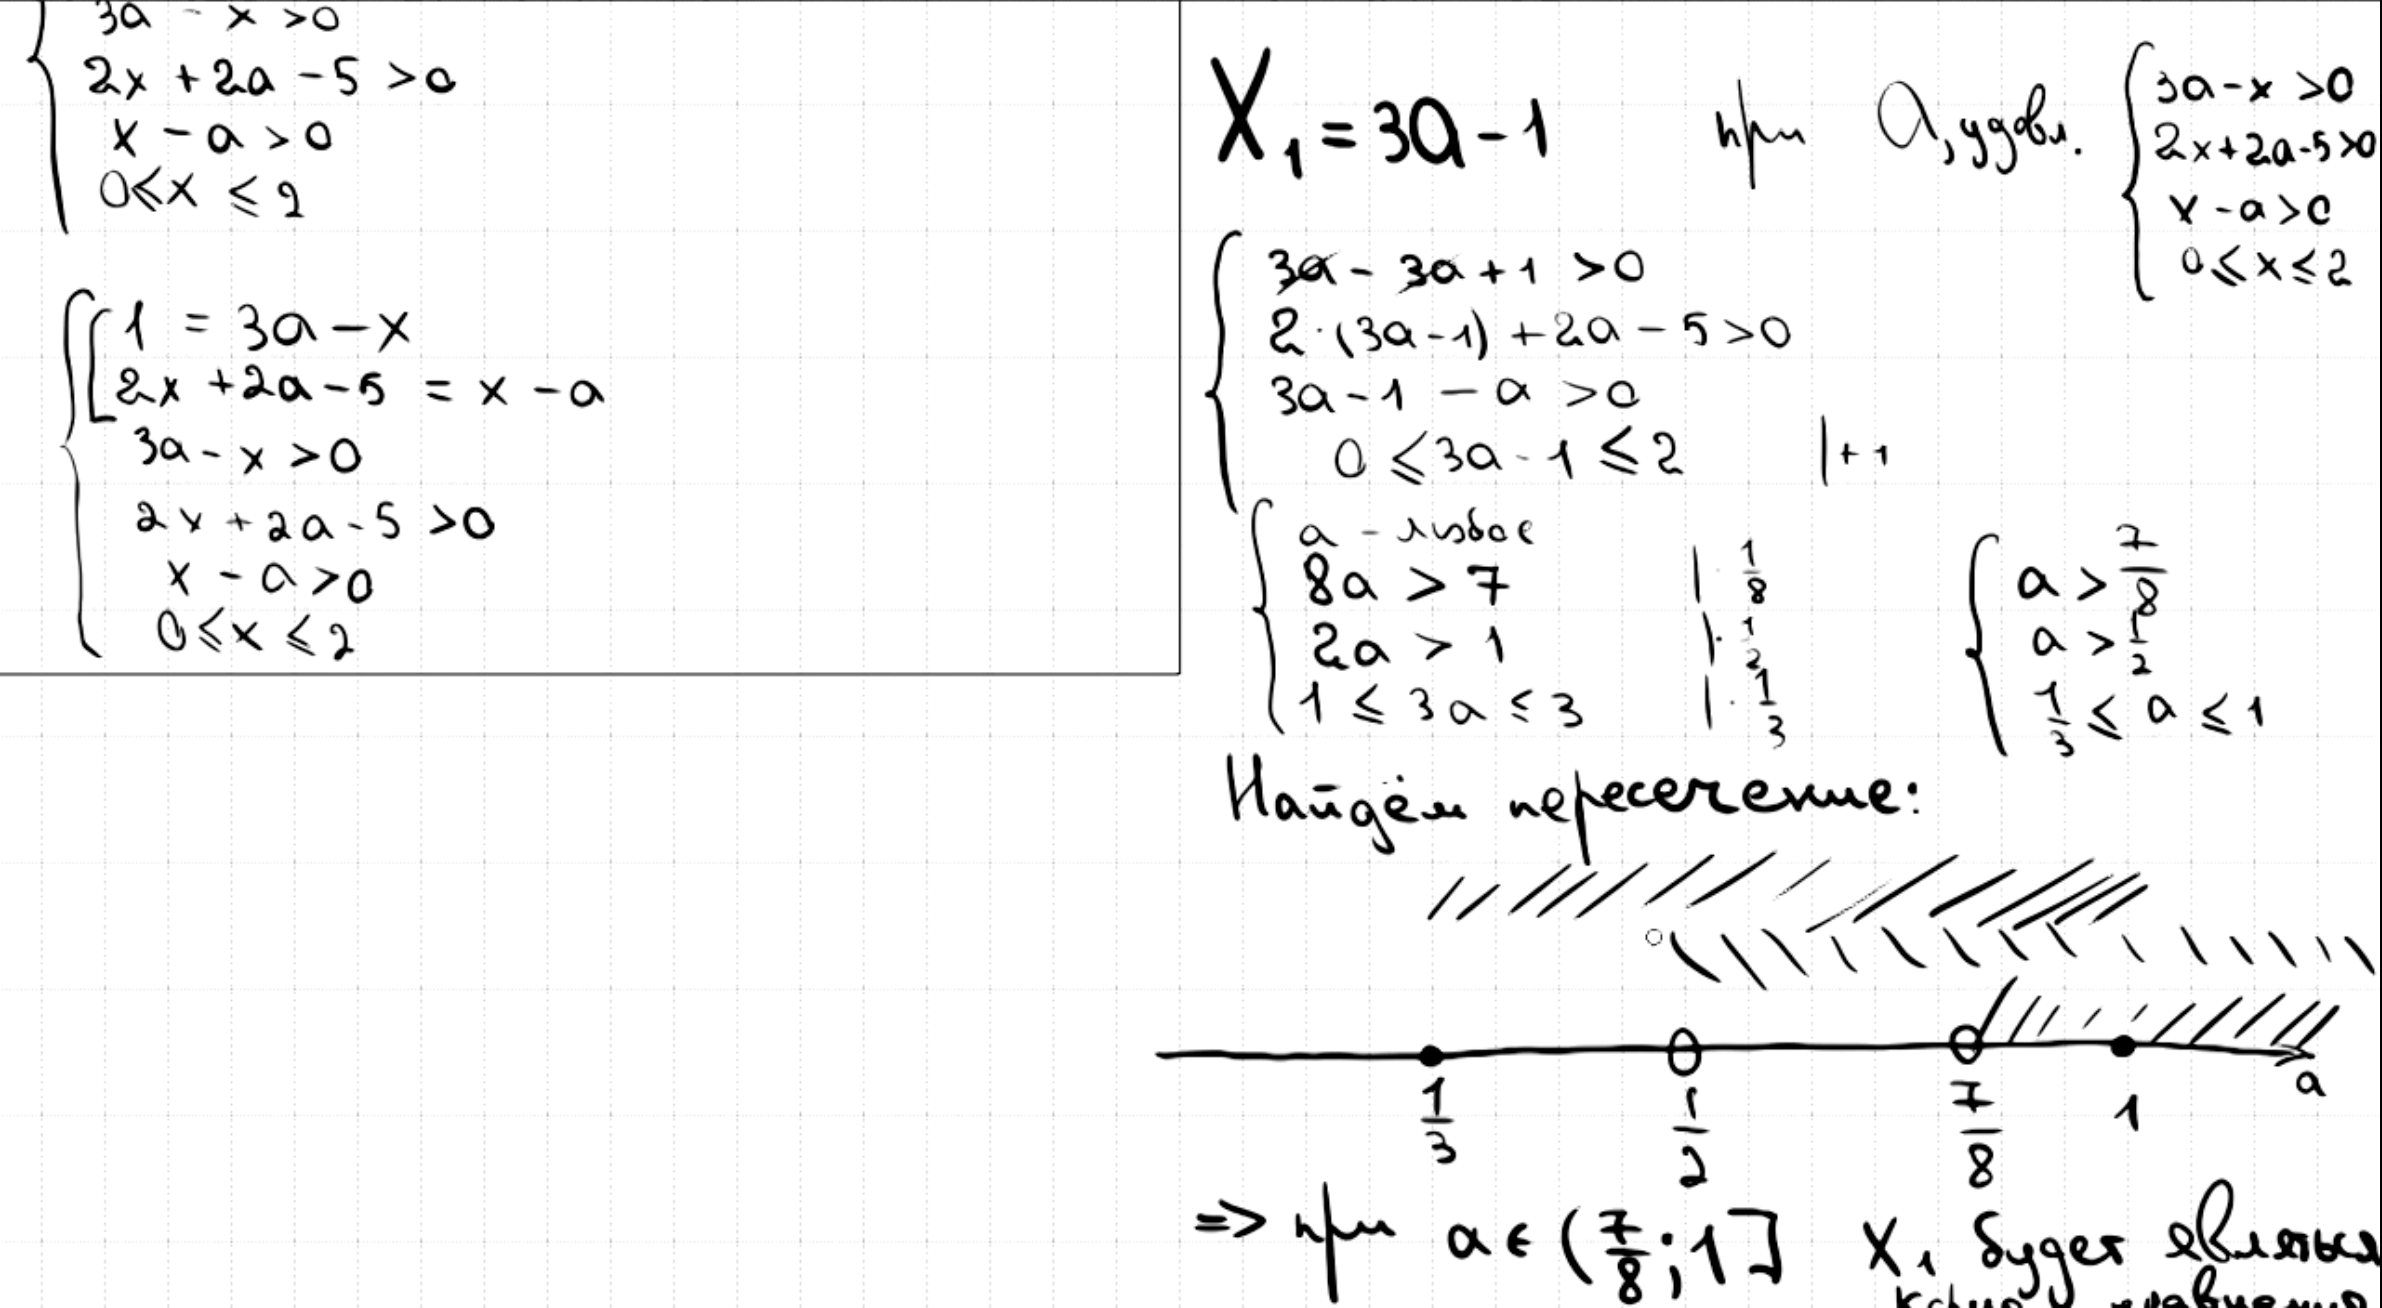 3a - x > 0
2x + 2a - 5 > 0
x - a > 0
0 ≤ x ≤ 2
1 = 3a - x
2x + 2a - 5 = x - a
3a - x > 0
2x + 2a - 5 > 0
x - a > 0
0 ≤ x ≤ 2
X₁ = 3a - 1 при a, удовл.
3a - x > 0
2x + 2a - 5 > 0
x - a > 0
0 ≤ x ≤ 2
3a - 3a + 1 > 0
2·(3a - 1) + 2a - 5 > 0
3a - 1 - a > 0
0 ≤ 3a - 1 ≤ 2 | + 1
a - любое
8a > 7 | · 1/8
2a > 1 | · 1/2
1 ≤ 3a ≤ 3 | · 1/3
a > 7/8
a > 1/2
1/3 ≤ a ≤ 1
Найдём пересечение:
1/3 1/2 7/8 1 a
=> при a ∈ (7/8; 1] X₁ будет являться